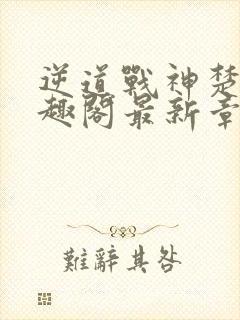 逆道戰神楚
趣閣最新章
難辭其咎